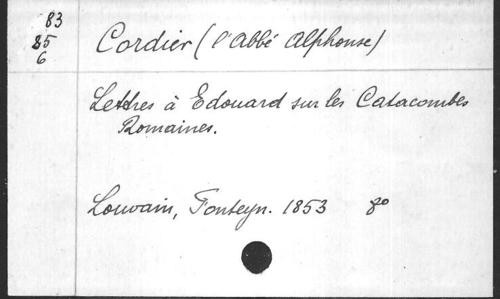 83
85
6
Cordier (l'Abbé Alphonse)
Lettres à Edouard sur les Catacombes
Romaines.
Louvain, Fonteyn. 1853 8o